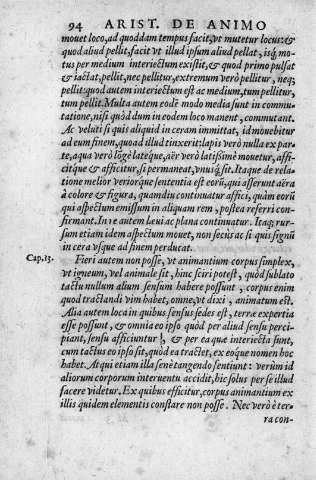 94 ARIST. DE ANIMO
mouet loco, ad quoddam tempus facit, vt mutetur locus: &
quod aliud pellit, facit vt illud ipsum aliud pellat, isq́; mo-
tus per medium interiectum existit, & quod primo pulsat
& iactat, pellit, nec pellitur, extremum verò pellitur, neq;
pellit: quod autem interiectum est ac medium, tum pellitur,
tum pellit. Multa autem eodē modo media sunt in commu-
tatione, nisi quòd dum in eodem loco manent, commutant.
Ac veluti si quis aliquid in ceram immittat, id mouebitur
ad eum finem, quoad illud tinxerit: lapis verò nulla ex par-
te, aqua verò lōgè latéque, aër verò latißimè mouetur, affi-
citque & afficitur, si permaneat, vnusq́; sit. Itaque de rela-
tione melior veriorque sententia est eorū, qui asserunt aëra
à colore & figura, quamdiu continuatur affici, quàm eorū
qui aspectum emissum in aliquam rem, postea referri confi-
rmant. In re autem leui ac plana continuatur. Itaq; rur-
sum etiam idem aspectum mouet, non secùs ac si quis signū
in cera vsque ad finem perducat.
Cap.13. Fieri autem non posse, vt animantium corpus simplex,
vt igneum, vel animale sit, hinc sciri potest, quòd sublato
tactu nullum alium sensum habere possunt, corpus enim
quod tractandi vim habet, omne, vt dixi, animatum est.
Alia autem loca in quibus sensus sedes est, terræ expertia
esse possunt, & omnia eo ipso quòd per aliud sensu perci-
piant, sensu afficiuntur, & per ea quæ interiecta sunt,
cum tactus eo ipso sit, quòd ea tractet, ex eoque nomen hoc
habet. Atqui etiam illa sanè tangendo sentiunt: verùm id
aliorum corporum interuentu accidit, hic solus per se illud
facere videtur. Ex quibus efficitur, corpus animantium ex
illis quidem elementis constare non posse. Nec verò è ter-
ra con-